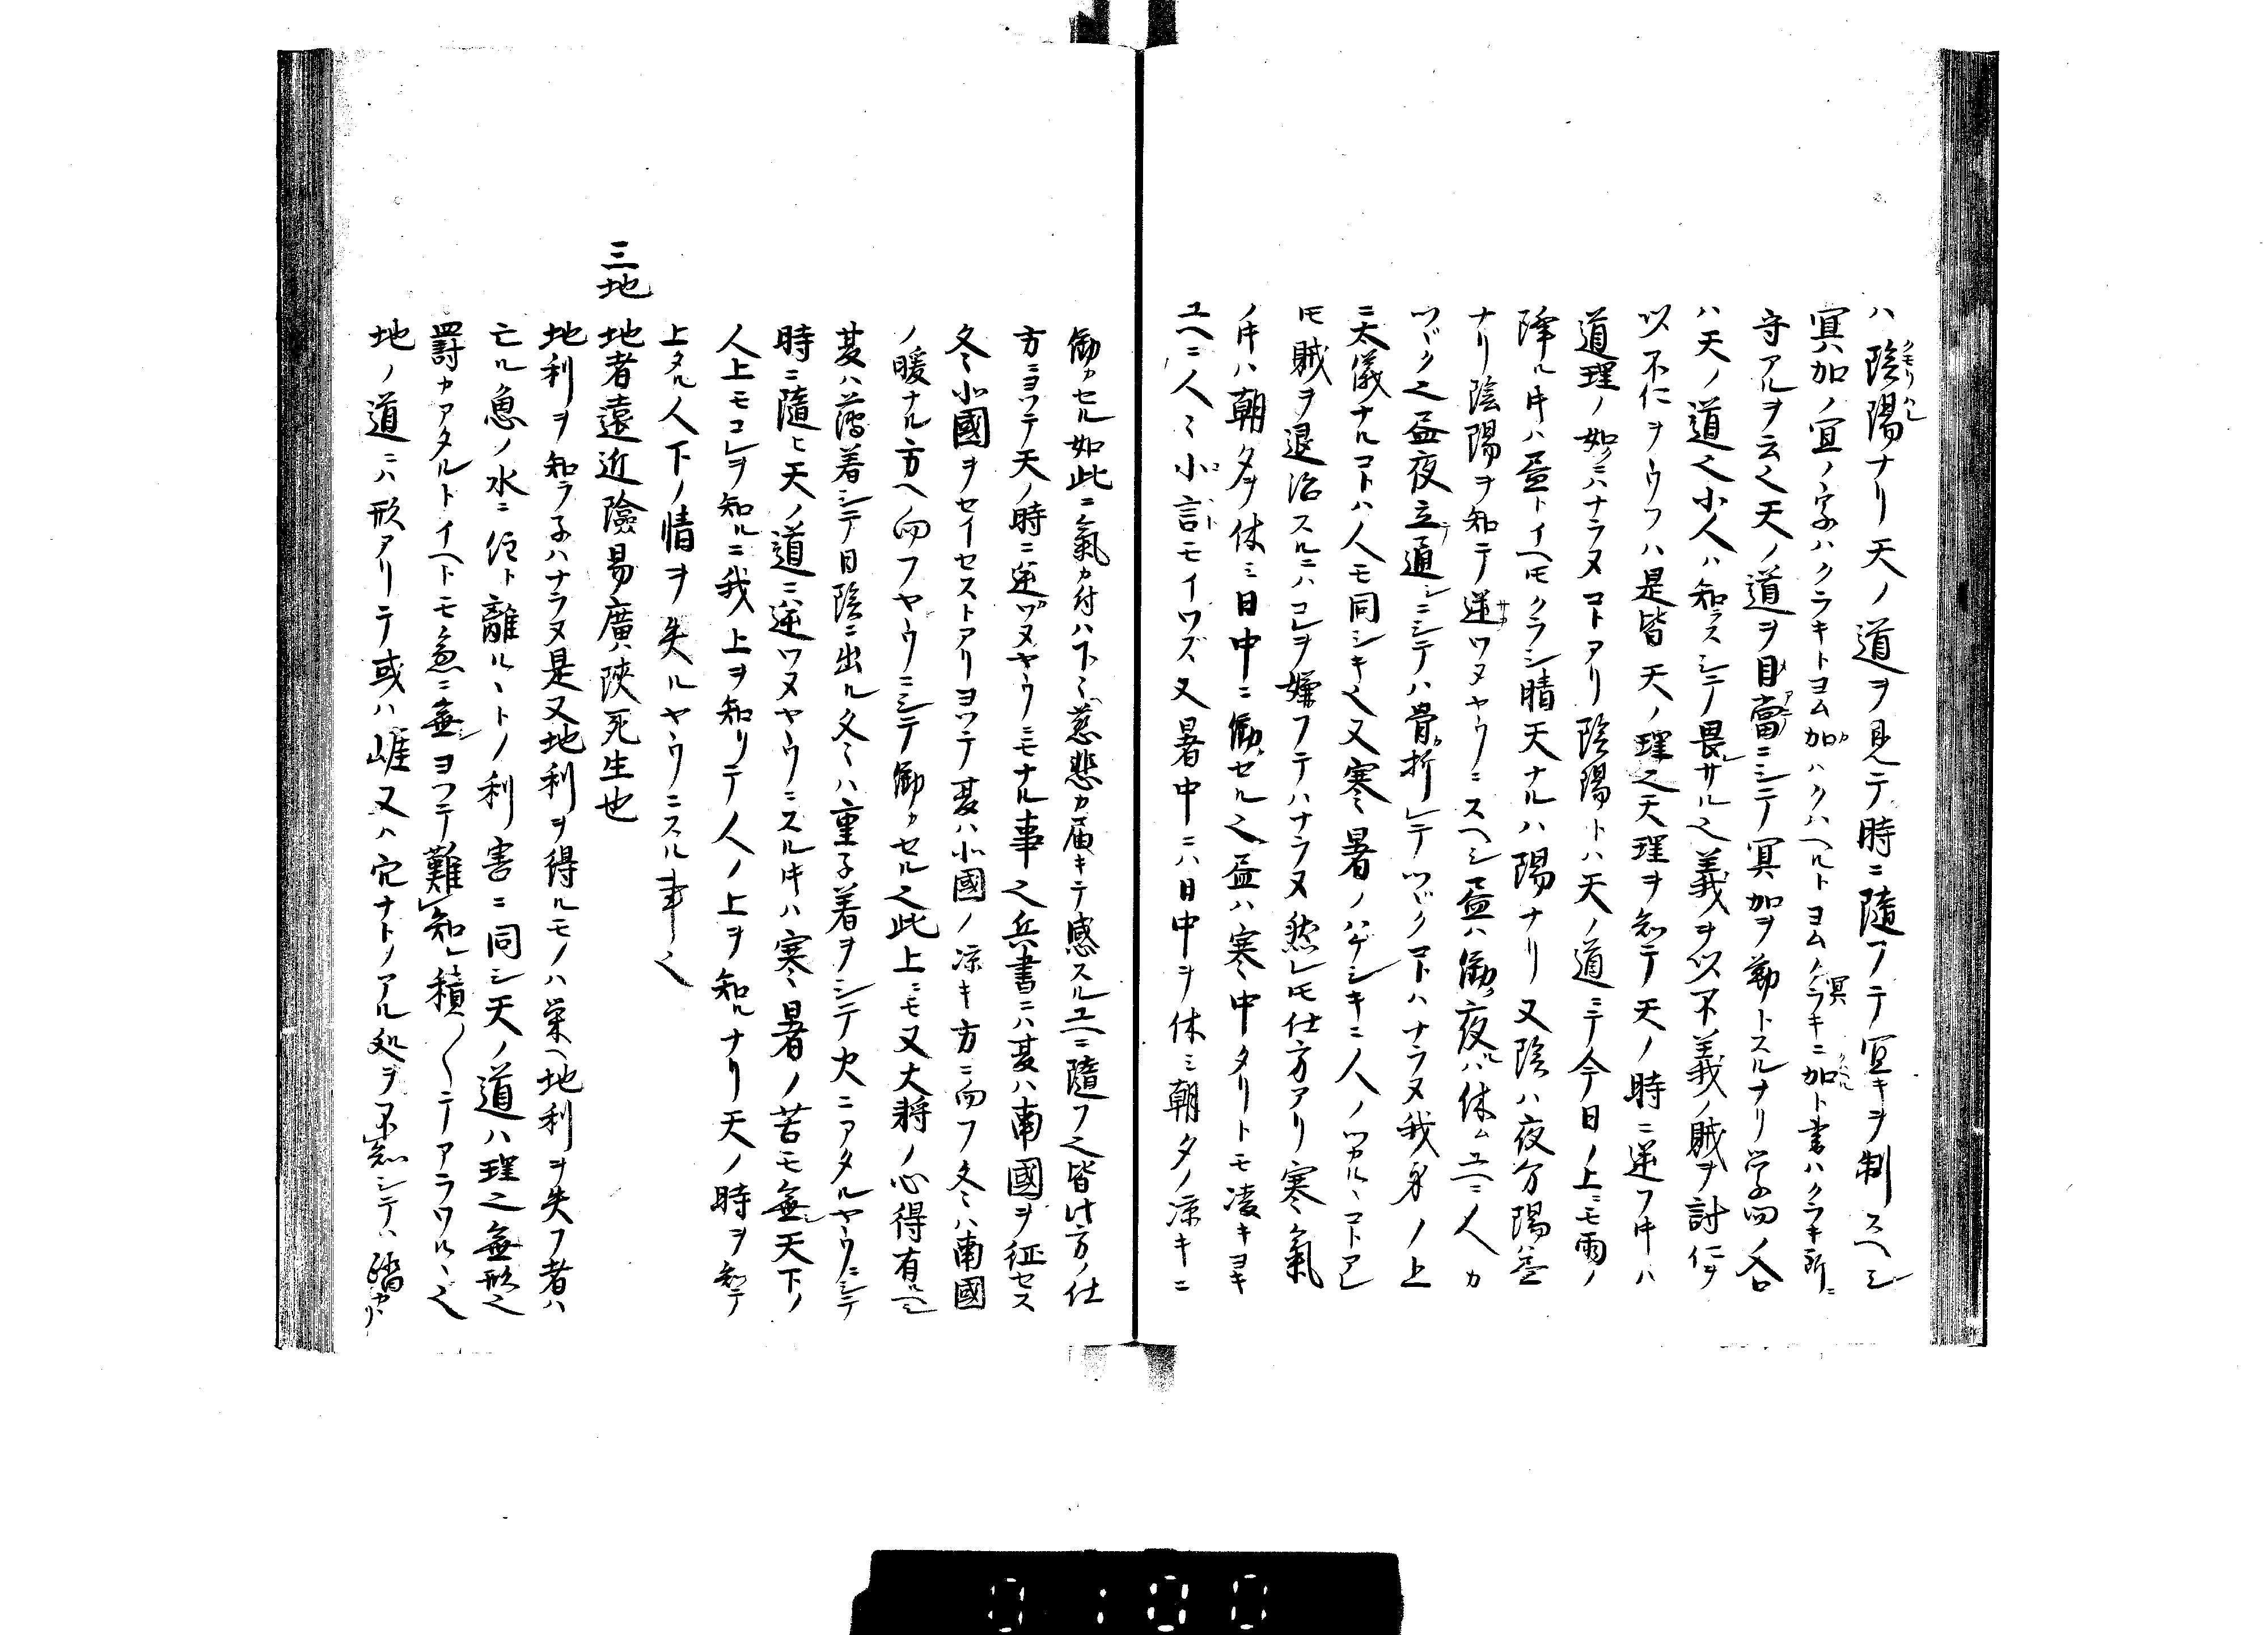 ハ陰陽ナリ天ノ道ヲ見テ時ニ隨フテ宜キヲ制スヘシ
冥加ノ宜ノ字ハクラキトヨム加ハクハヘルトヨムクラキニ加ト書ハクラキ所ニ
守アルヲ云之天ノ道ヲ目當ニシテ冥加ヲ勤トスルナリ学問ノ名
ハ天ノ道之小人ハ知ラスシテ畏サル之義ヲ以不義ノ賊ヲ討仁ヲ
以不仁ヲウツハ是皆天ノ理之天理ヲ知テ天ノ時ニ逆フ時ハ
道理ノ如クニハナラヌコトアリ陰陽トハ天ノ道ニテ今日ノ上ニモ雨ノ
降ル時ハ昼トイヘトモクラシ晴天ナルハ陽ナリ又陰ハ夜分陽ハ昼
ナリ陰陽ヲ知テ逆ワヌヤウニスヘシ昼ハ働夜ハ休ムユヘニ人カ
ツヾク之昼夜立通シニシテハ骨折レテツヾクコトハナラヌ我身ノ上
ニ太儀ナルコトハ人モ同シキ之又寒暑ノハゲシキニ人ノツカルヽコトアレ
トモ賊ヲ退治スルニハコレヲ嫌フテハナラヌ然レトモ仕方アリ寒氣
ノ時ハ朝夕ヲ休ミ日中ニ働カセル之昼ハ寒中タリトモ凌キヨキ
ユヘニ人々小言モイワズ又暑中ニハ日中ヲ休ミ朝夕ノ凉キニ
働カセル如此ニ氣カ付ハ下々慈悲カ届キテ感スルユヘニ隨フ之皆此方ノ仕
方ニヨツテ天ノ時ニ逆ワヌヤウニモナル事之兵書ニハ夏ハ南國ヲ征セス
冬ハ北國ヲセイセストアリヨツテ夏ハ北國ノ凉キ方ニ向フ冬ハ南國
ノ暖ナル方ヘ向フヤウニシテ働カセル之此上ニモ又大将ノ心得有ヘシ
夏ハ薄着シテ日陰ニ出ル冬ハ重子着ヲシテ火ニアタルヤウニシテ
時ニ隨ヒ天ノ道ニ逆ワヌヤウニスル時ハ寒暑ノ苦モ無シ天下ノ
人上モコレヲ知ルニ我上ヲ知リテ人ノ上ヲ知ルナリ天ノ時ヲ知テ
上タル人下ノ情ヲ失ルヤウニスル事之
三地
地者遠近險易廣狹死生也
地利ヲ知ラ子ハナラヌ是又地利ヲ得ルモノハ栄ヘ地利ヲ失フ者ハ
亡ル魚ノ水ニ住ト離ルヽトノ利害ニ同シ天ノ道ハ理之無形之
罸カアタルトイヘトモ急ニ無シヨツテ難知レ積ノ〱テアラワルヽ之
地ノ道ニハ形アリテ或ハ崕又ハ穴ナトノアル処ヲ不知シテハ踏カ